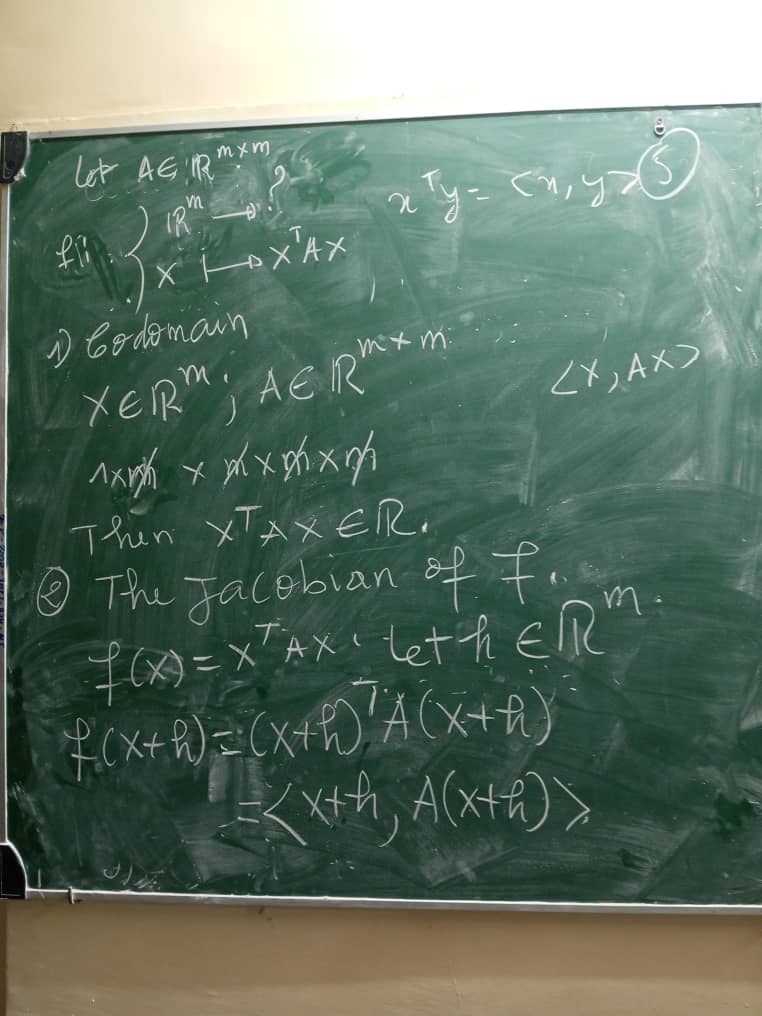 Let A ∈ ℝ^{m×m}
x^T y = <x, y> (5)
f: { ℝ^m → ?
x ↦ x^T A x
1) Codomain
x ∈ ℝ^m ; A ∈ ℝ^{m×m}
<x, Ax>
1×m × m×m×m
Then x^T A x ∈ ℝ.
② The Jacobian of f.
f(x) = x^T A x . Let h ∈ ℝ^m.
f(x+h) = (x+h)^T A(x+h)
= <x+h, A(x+h)>